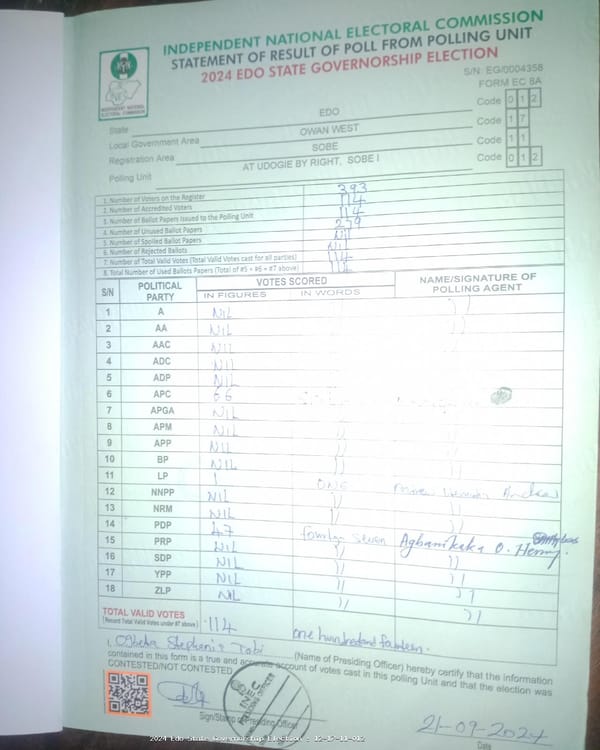 INDEPENDENT NATIONAL ELECTORAL COMMISSION
STATEMENT OF RESULT OF POLL FROM POLLING UNIT
2024 EDO STATE GOVERNORSHIP ELECTION
S/N: EG/0004358
FORM EC 8A
INDEPENDENT NATIONAL ELECTORAL COMMISSION
State EDO Code 0 1 2
Local Government Area OWAN WEST Code 1 7
Registration Area SOBE Code 1 1
Polling Unit AT UDOGIE BY RIGHT, SOBE I Code 0 1 2
1. Number of Voters on the Register 393
2. Number of Accredited Voters 114
3. Number of Ballot Papers Issued to the Polling Unit 114
4. Number of Unused Ballot Papers 279
5. Number of Spoiled Ballot Papers Nil
6. Number of Rejected Ballots Nil
7. Number of Total Valid Votes (Total Valid Votes cast for all parties) 114
8. Total Number of Used Ballots Papers (Total of #5 + #6 + #7 above) 114
S/N POLITICAL PARTY VOTES SCORED NAME/SIGNATURE OF POLLING AGENT
IN FIGURES IN WORDS
1 A NIL
2 AA NIL
3 AAC NIL
4 ADC NIL
5 ADP NIL
6 APC 66
7 APGA NIL
8 APM NIL
9 APP NIL
10 BP NIL
11 LP 1 ONE
12 NNPP NIL
13 NRM NIL
14 PDP 47 Fourty Seven Agbanikaka O. Henry.
15 PRP NIL
16 SDP NIL
17 YPP NIL
18 ZLP NIL
TOTAL VALID VOTES 114 one hundred and fourteen.
(Record Total Valid Votes under #7 above)
I, Stephanie Tobi (Name of Presiding Officer) hereby certify that the information
contained in this form is a true and accurate account of votes cast in this polling Unit and that the election was
CONTESTED/NOT CONTESTED
INEC
PRESIDING OFFICER
Sign/Stamp of Presiding Officer
21-09-2024
Date
2024 Edo State Governorship Election - 12-17-11-012